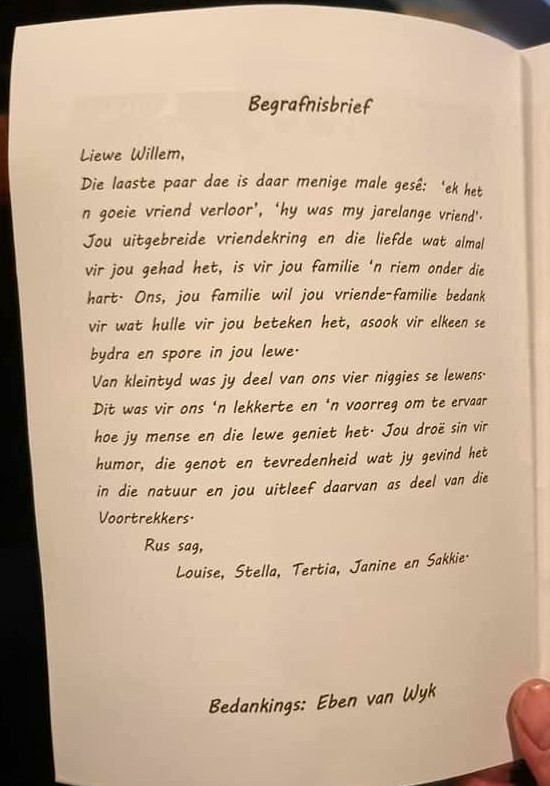 Begrafnisbrief
Liewe Willem,
Die laaste paar dae is daar menige male gesê: 'ek het
n goeie vriend verloor', 'hy was my jarelange vriend'.
Jou uitgebreide vriendekring en die liefde wat almal
vir jou gehad het, is vir jou familie 'n riem onder die
hart. Ons, jou familie wil jou vriende-familie bedank
vir wat hulle vir jou beteken het, asook vir elkeen se
bydra en spore in jou lewe.
Van kleintyd was jy deel van ons vier niggies se lewens.
Dit was vir ons 'n lekkerte en 'n voorreg om te ervaar
hoe jy mense en die lewe geniet het. Jou droë sin vir
humor, die genot en tevredenheid wat jy gevind het
in die natuur en jou uitleef daarvan as deel van die
Voortrekkers.
Rus sag,
Louise, Stella, Tertia, Janine en Sakkie.
Bedankings: Eben van Wyk